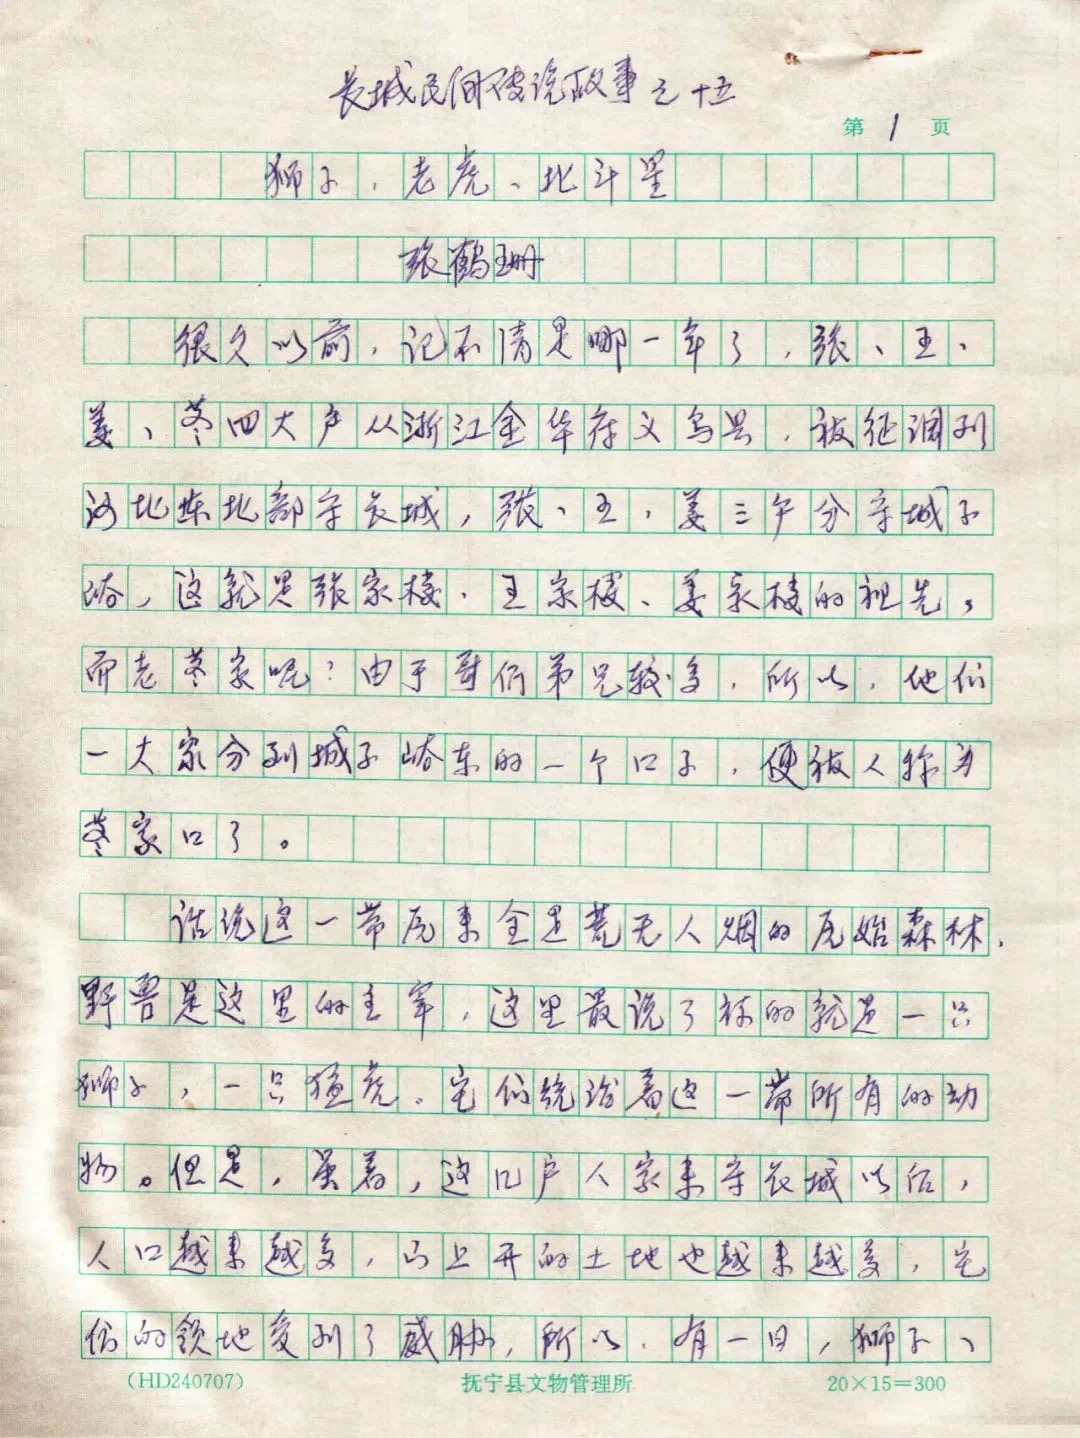 长城民间传说故事之十五
第 1 页
狮子、老虎、北斗星
张鹤珊
很久以前，记不清是哪一年了，张、王、
姜、苳四大户从浙江金华府义乌县，被征调到
河北东北部守长城，张、王、姜三户分守城子
峪，这就是张家楼、王家楼、姜家楼的祖先，
而老苳家呢？由于哥们弟兄较多，所以，他们
一大家分到城子峪东的一个口子，便被人称为
苳家口了。
话说这一带原来全是荒无人烟的原始森林，
野兽是这里的主宰，这里最说了祘的就是一只
狮子，一只猛虎。它们统治着这一带所有的动
物。但是，虽着，这几户人家来守长城以后，
人口越来越多，山上开的土地也越来越多，它
们的领地受到了威胁，所以，有一日，狮子、
(HD240707)
抚宁县文物管理所
20×15=300